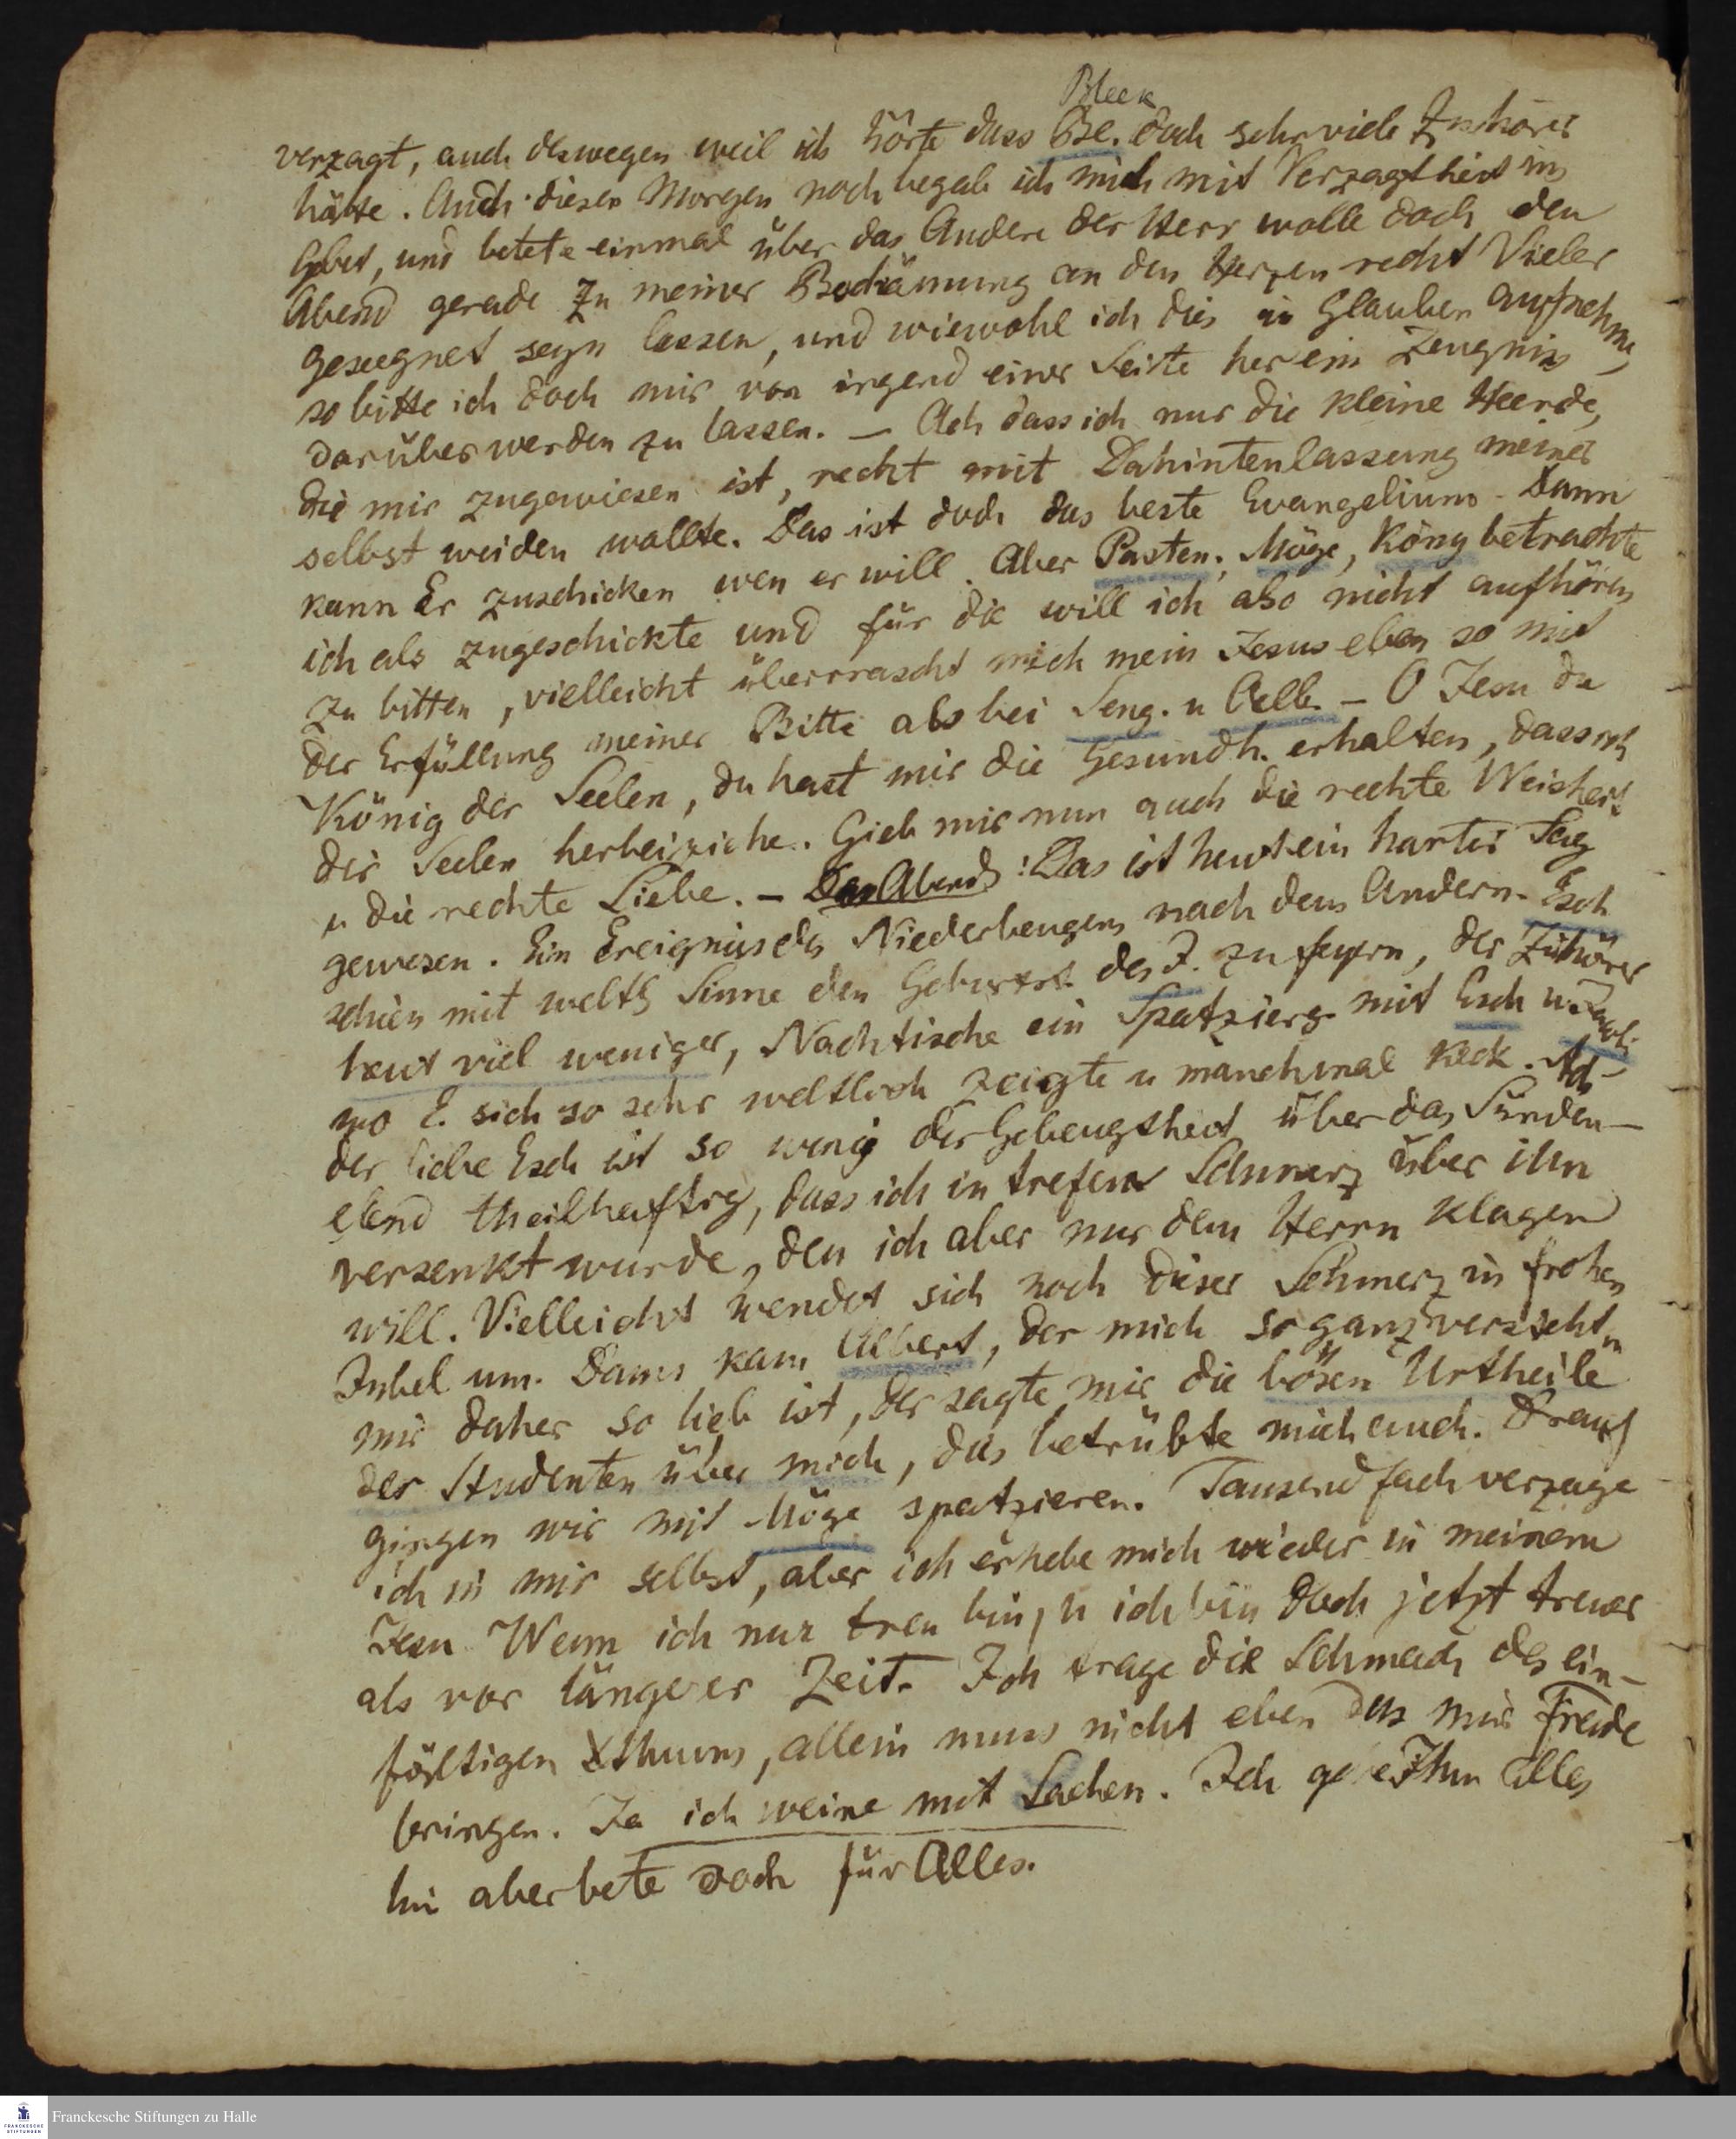 Bleek
verzagt, auch deswegen weil ich hörte dass Bl. doch sehr viele Zuhörer
hätte. Auch diesen Morgen noch begab ich mich mit Verzagtheit ins
Gebet, und betete einmal über das Andere der Herr wolle doch den
Abend gerade zu meiner Beschämung an den Herzen recht Vieler
geseegnet seyn lassen, und wiewohl ich dies im Glauben aufnehme,
so bitte ich doch mir von irgend einer Seite her ein Zeugniss
darüber werden zu lassen. — Ach dass ich nur die kleine Heerde,
die mir zugewiesen ist, recht mit Dahintenlassung meiner
selbst weiden wollte. Das ist doch das beste Evangelium. Dann
kann Er zuschicken wen er will. Aber Pasten, Möge, König betrachte
ich als zugeschickte und für die will ich also nicht aufhören
zu bitten, vielleicht überrrascht mich mein Jesus eben so mit
der Erfüllung meiner Bitte als bei Seng. u — O Jesu du
König der Seelen, du hast mir die Gesundh. erhalten, dass ich
dir Seelen herbeiziehe. Gieb mir nun auch die rechte Weisheit
u die rechte Liebe. — Den Abend: Das ist heut ein harter Tag
gewesen. Ein Ereigniss des Niederbeugens nach dem Andern. Esch
schien mit weltl. Sinne den Geburtst. des J. zu feyern, der Zuhörer
heut viel weniger, Nachtische ein Spatzierg mit Esch u.
wo E. sich so sehr weltlich zeigte u manchmal keck. Ach
der liebe Esch ist so wenig der Gebeugtheit über das Sünden-
elend theilhaftig, dass ich in tiefen Schmerz über ihn
versenkt wurde, den ich aber nur dem Herrn klagen
will. Vielleicht wendet sich noch dieser Schmerz in frohen
Jubel um. Dann kam Albert, der mich so ganz versteht u
mir daher so lieb ist, der sagte mir die bösen Urtheile
der Studenten über mich, das betrübte mich auch. Drauf
gingen wir mit Möge spatzieren. Tausendfach verzage
ich in mir selbst, aber ich erhebe mich wieder in meinem
Jesu Wenn ich nur treu bin, u ich bin doch jetzt treuer
als vor längerer Zeit. Ich trage die Schmach des ein-
fältigen Xthums, allein muss nicht eben das mir Freude
bringen. Ja ich weine mit Lachen. Ich gebe Ihm Alles
hin aber bete doch für Alles.
Franckesche Stiftungen zu Halle
FRANCKESCHE
STIFTUNGEN